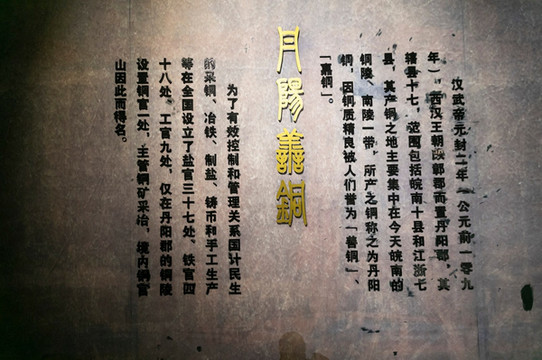 汉武帝元封二年(公元前一零九
年),西汉王朝改鄣郡而置丹阳郡,其
辖县十七,范围包括皖南十县和江浙七
县,其产铜之地主要集中在今天皖南的
铜陵、南陵一带,所产之铜称之为丹阳
铜,因铜质精良被人们誉为「善铜」、
「嘉铜」。
丹陽善銅
为了有效控制和管理关系国计民生
的采铜、冶铁、制盐、铸币和手工生产
够在全国设立了盐官三十七处、铁官四
十八处、工官九处,仅在丹阳郡的铜陵
设置铜官一处,主管铜矿采冶,境内铜官
山因此而得名。